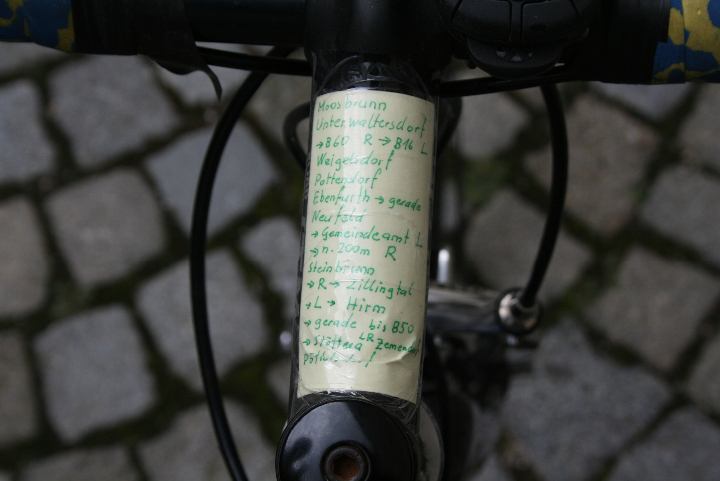 Moosbrunn
Unterwaltersdorf
→ B60 R → B16 L
Weigelsdorf
Pottendorf
Ebenfurth → gerade
Neufeld
→ Gemeindeamt L
→ n. 200m R
Steinbrunn
→ R → Zillingtal
→ L → Hirm
→ gerade bis B50
→ Stöttera LR Zemend